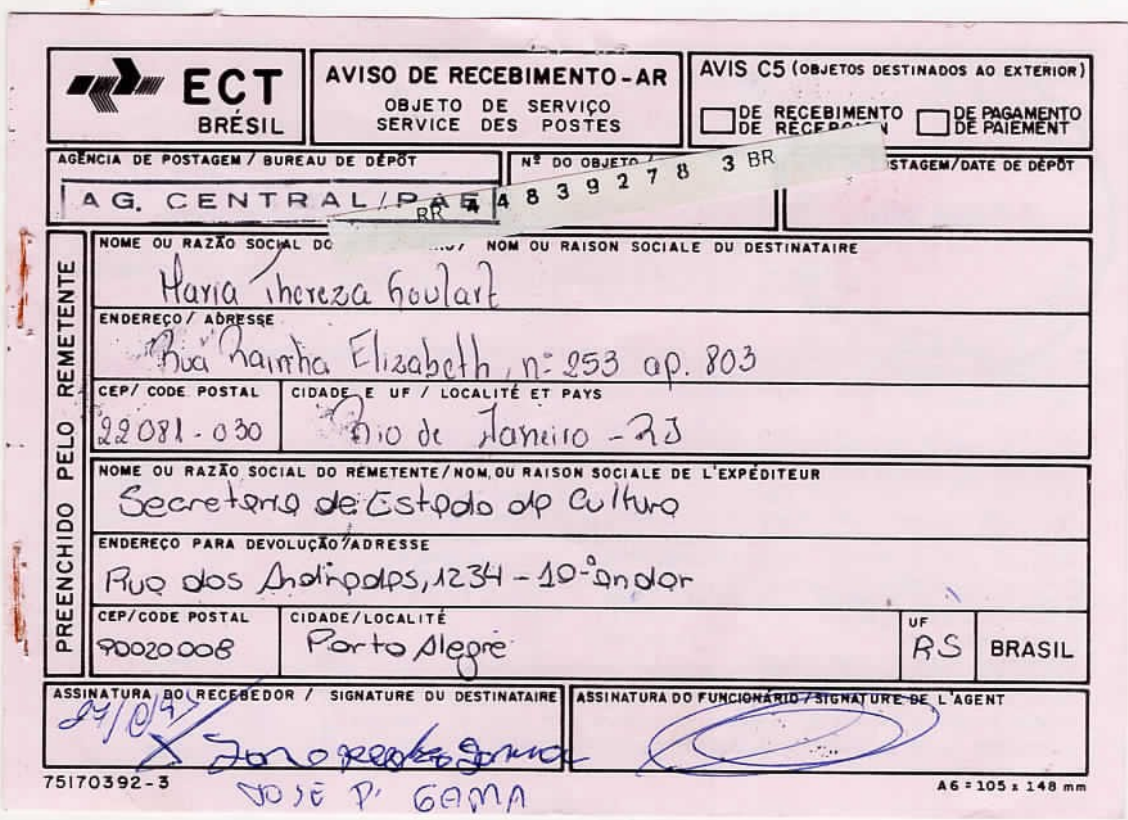 ECT
BRÉSIL
AVISO DE RECEBIMENTO-AR
OBJETO DE SERVIÇO
SERVICE DES POSTES
AVIS C5 (OBJETOS DESTINADOS AO EXTERIOR)
DE RECEBIMENTO
DE PAGAMENTO
DE PAIEMENT
AGÊNCIA DE POSTAGEM / BUREAU DE DÉPÔT
AG. CENTRAL/PAE
Nº DO OBJETO /
RR 4 4 8 3 9 2 7 8 3 BR
STAGEM/DATE DE DÉPÔT
PREENCHIDO PELO REMETENTE
NOME OU RAZÃO SOCIAL DO NOM OU RAISON SOCIALE DU DESTINATAIRE
Maria Thereza Goulart
ENDEREÇO / ADRESSE
Rua Rainha Elizabeth, nº 253 ap. 803
CEP/ CODE POSTAL
22081-030
CIDADE E UF / LOCALITÉ ET PAYS
Rio de Janeiro - RJ
NOME OU RAZÃO SOCIAL DO REMETENTE/NOM OU RAISON SOCIALE DE L'EXPÉDITEUR
Secretaria de Estado da Cultura
ENDEREÇO PARA DEVOLUÇÃO/ADRESSE
Rua dos Andradas, 1234 - 10º andar
CEP/CODE POSTAL
90020008
CIDADE/LOCALITÉ
Porto Alegre
UF
RS
BRASIL
ASSINATURA DO RECEBEDOR / SIGNATURE DU DESTINATAIRE
ASSINATURA DO FUNCIONÁRIO / SIGNATURE DE L'AGENT
JOSE P. GAMA
75170392-3
A6 = 105 x 148 mm